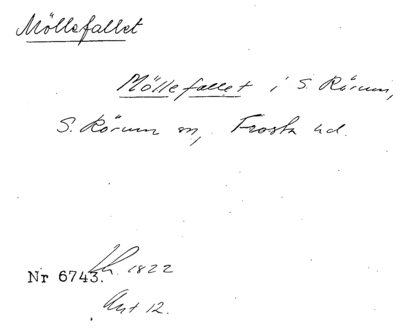 Möllefallet
Möllefallet i S. Rörum,
S. Rörum sn, Frosta hd.
Lh. 1822
Nr 6743.
Akt 12.